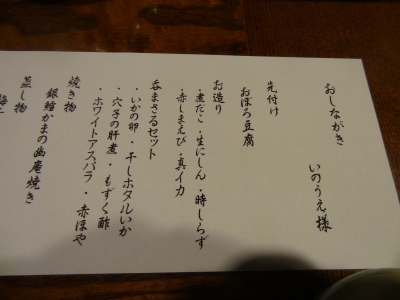 おしながき
いのうえ様
先付け
おぼろ豆腐
お造り
・煮だこ・生にしん・時しらず
・赤しまえび・真イカ
呑まさるセット
・いかの卵・干しホタルいか
・穴子の肝煮・もずく酢
・ホワイトアスパラ・赤ほや
焼き物
銀鱈かまの幽庵焼き
蒸し物